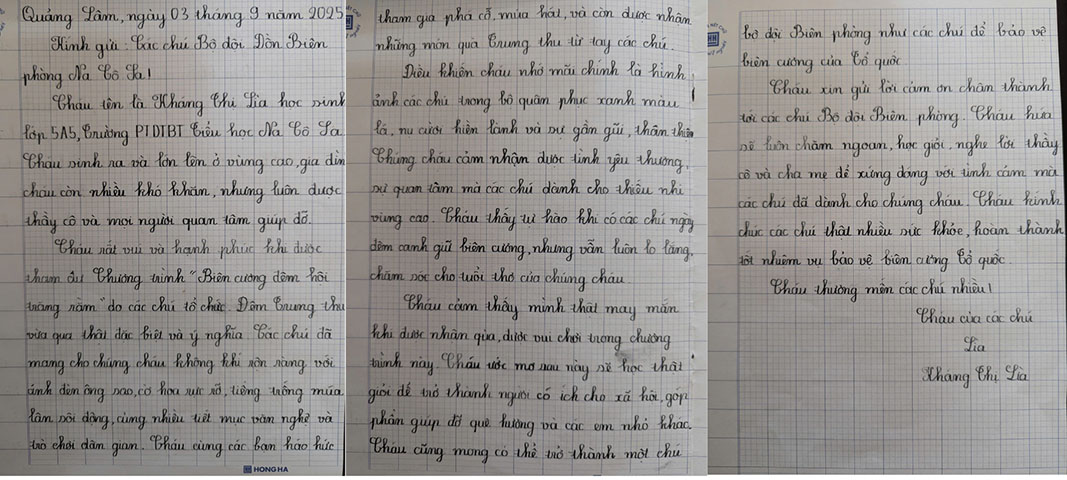 Quảng Lâm, ngày 03 tháng 9 năm 2025
Kính gửi: Các chú Bộ đội Đồn Biên
phòng Nà Cô Sa!
Cháu tên là Kháng Thị Lia học sinh
lớp 5A5, trường PTDTBT Tiểu học Nà Cô Sa.
Cháu sinh ra và lớn lên ở vùng cao, gia đìn
cháu còn nhiều khó khăn, nhưng luôn được
thầy cô và mọi người quan tâm giúp đỡ.
Cháu rất vui và hạnh phúc khi được
tham dự Chương trình "Biên cương đêm hội
trăng rằm" do các chú tổ chức. Đêm Trung thu
vừa qua thật đặc biệt và ý nghĩa. Các chú đã
mang cho chúng cháu không khí rộn ràng với
ánh đèn ông sao, cờ hoa rực rỡ, tiếng trống múa
lân sôi động, cùng nhiều tiết mục văn nghệ và
trò chơi dân gian. Cháu cùng các bạn háo hức
HONG HA
tham gia phá cỗ, múa hát, và còn được nhận
những món quà Trung thu từ tay các chú.
Điều khiến cháu nhớ mãi chính là hình
ảnh các chú trong bộ quân phục xanh màu
lá, nụ cười hiền lành và sự gần gũi, thân thiện
Chúng cháu cảm nhận được tình yêu thương,
sự quan tâm mà các chú dành cho thiếu nhi
vùng cao. Cháu thấy tự hào khi có các chú ngày
đêm canh giữ biên cương, nhưng vẫn luôn lo lắng,
chăm sóc cho tuổi thơ của chúng cháu.
Cháu cảm thấy mình thật may mắn
khi được nhận qùa, được vui chơi trong chương
trình này. Cháu ước mơ sau này sẽ học thật
giỏi để trở thành người có ích cho xã hội, góp
phần giúp đỡ quê hương và các em nhỏ khác.
Cháu cũng mong có thể trở thành một chú
bộ đội Biên phòng như các chú để bảo vệ
biên cương của Tổ quốc
Cháu xin gửi lời cảm ơn chân thành
tới các chú Bộ đội Biên phòng. Cháu hứa
sẽ luôn chăm ngoan, học giỏi, nghe lời thầy
cô và cha mẹ để xứng đáng với tình cảm mà
các chú đã dành cho chúng cháu. Cháu kính
chúc các chú thật nhiều sức khỏe, hoàn thành
tốt nhiệm vụ bảo vệ biên cương Tổ quốc.
Cháu thương mến các chú nhiều!
Cháu của các chú
Lia
Kháng Thị Lia